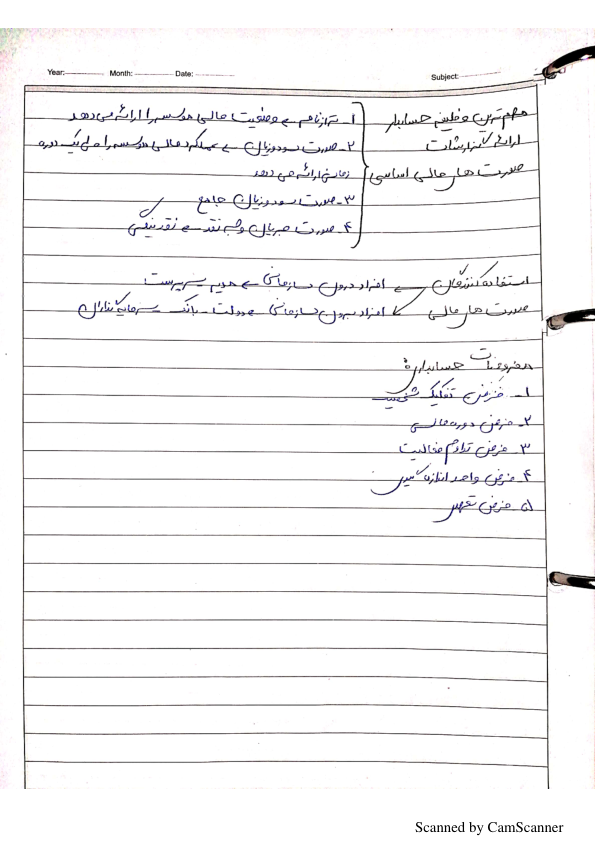 Year: Month: Date: Subject:
مهم ترین وظیفه حسابدار
ارائه گزارشات
صورت های مالی اساسی
۱- ترازنامه ← وضعیت مالی موسسه را ارائه می دهد
۲- صورت سود و زیان ← عملکرد مالی موسسه را طی یک دوره
زمانی ارائه می دهد
۳- صورت سود و زیان جامع
۴- صورت جریان وجه نقد ← نقدینگی
استفاده کنندگان ← افراد درون سازمانی ← مدیر سرپرست
صورت های مالی افراد برون سازمانی ← دولت - بانک - سرمایه گذاران
مفروضات حسابداری
۱- فرض تفکیک شخصیت
۲- فرض دوره مالی
۳- فرض تداوم فعالیت
۴- فرض واحد اندازه گیری
۵- فرض تعهدی
Scanned by CamScanner